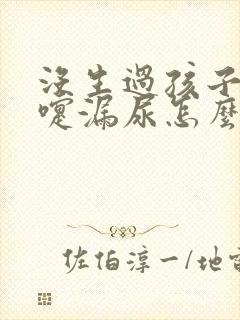 没生過孩子
嚏漏尿怎麼
佐伯淳一/地